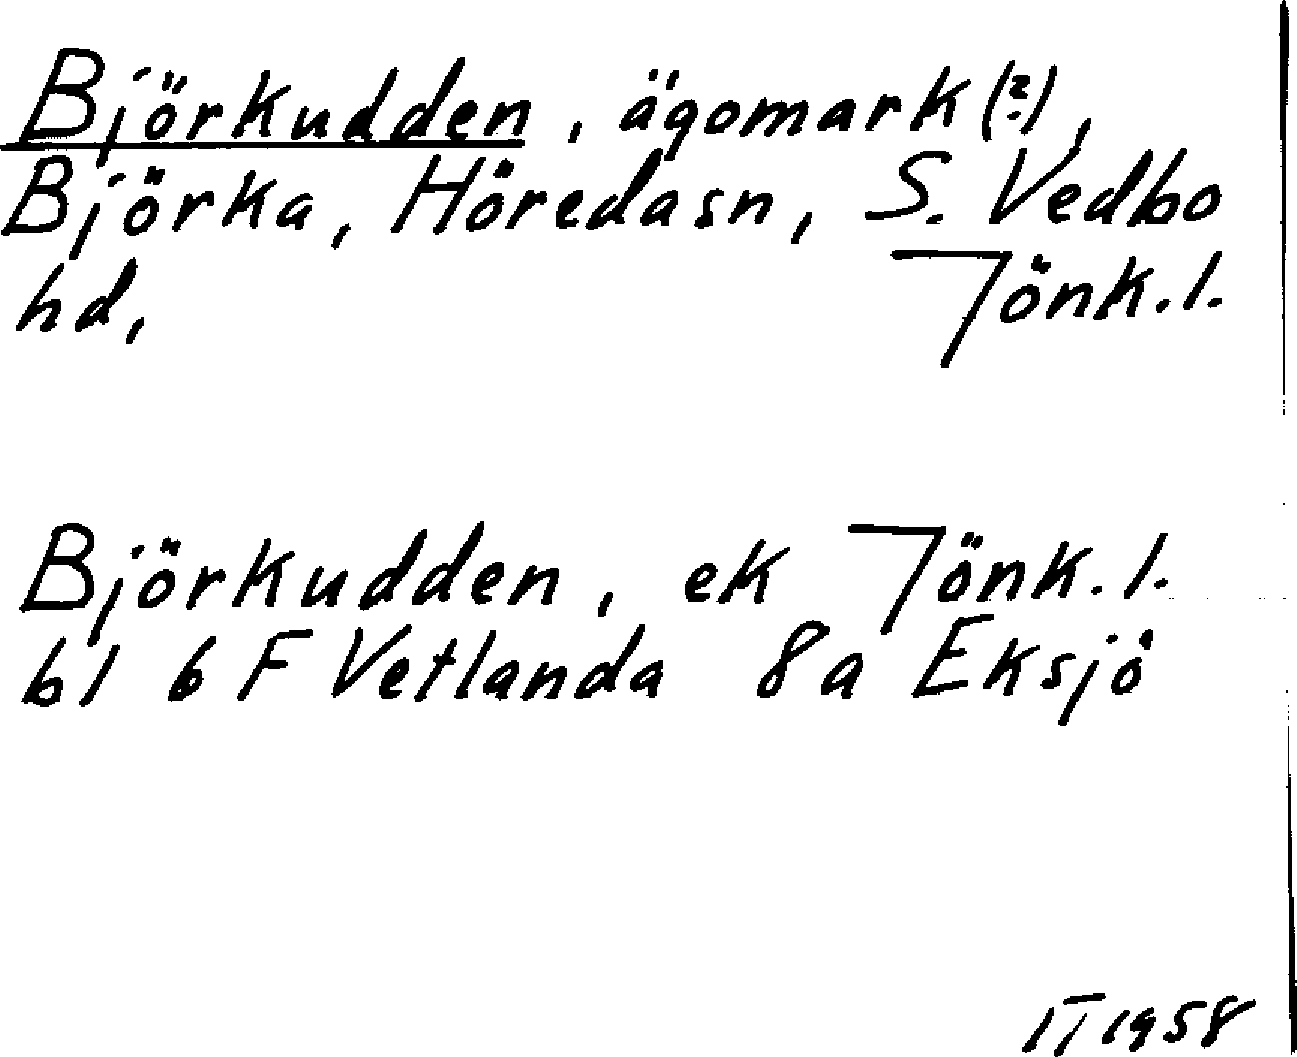 Björkudden, ägomark (?),
Björka, Höredasn, S. Vedbo
hd, Jönk. l.
Björkudden, ek Jönk. l.
bl 6 F Vetlanda 8a Eksjö
IT 1958